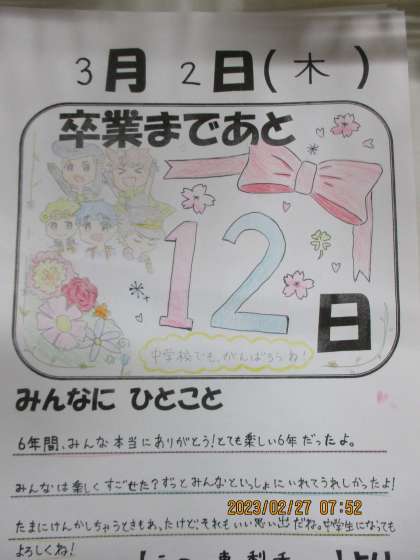 3月 2日(木)
卒業まであと
12
日
中学校でも、がんばろうね!
みんなに ひとこと
6年間、みんな本当にありがとう!とても楽しい6年だったよ。
みんなは楽しくすごせた?ずっとみんなといっしょにいれてうれしかったよ!
たまにけんかしちゃうときもあったけど、それもいい思い出だね。中学生になっても
よろしくね!
より
2023/02/27 07:52